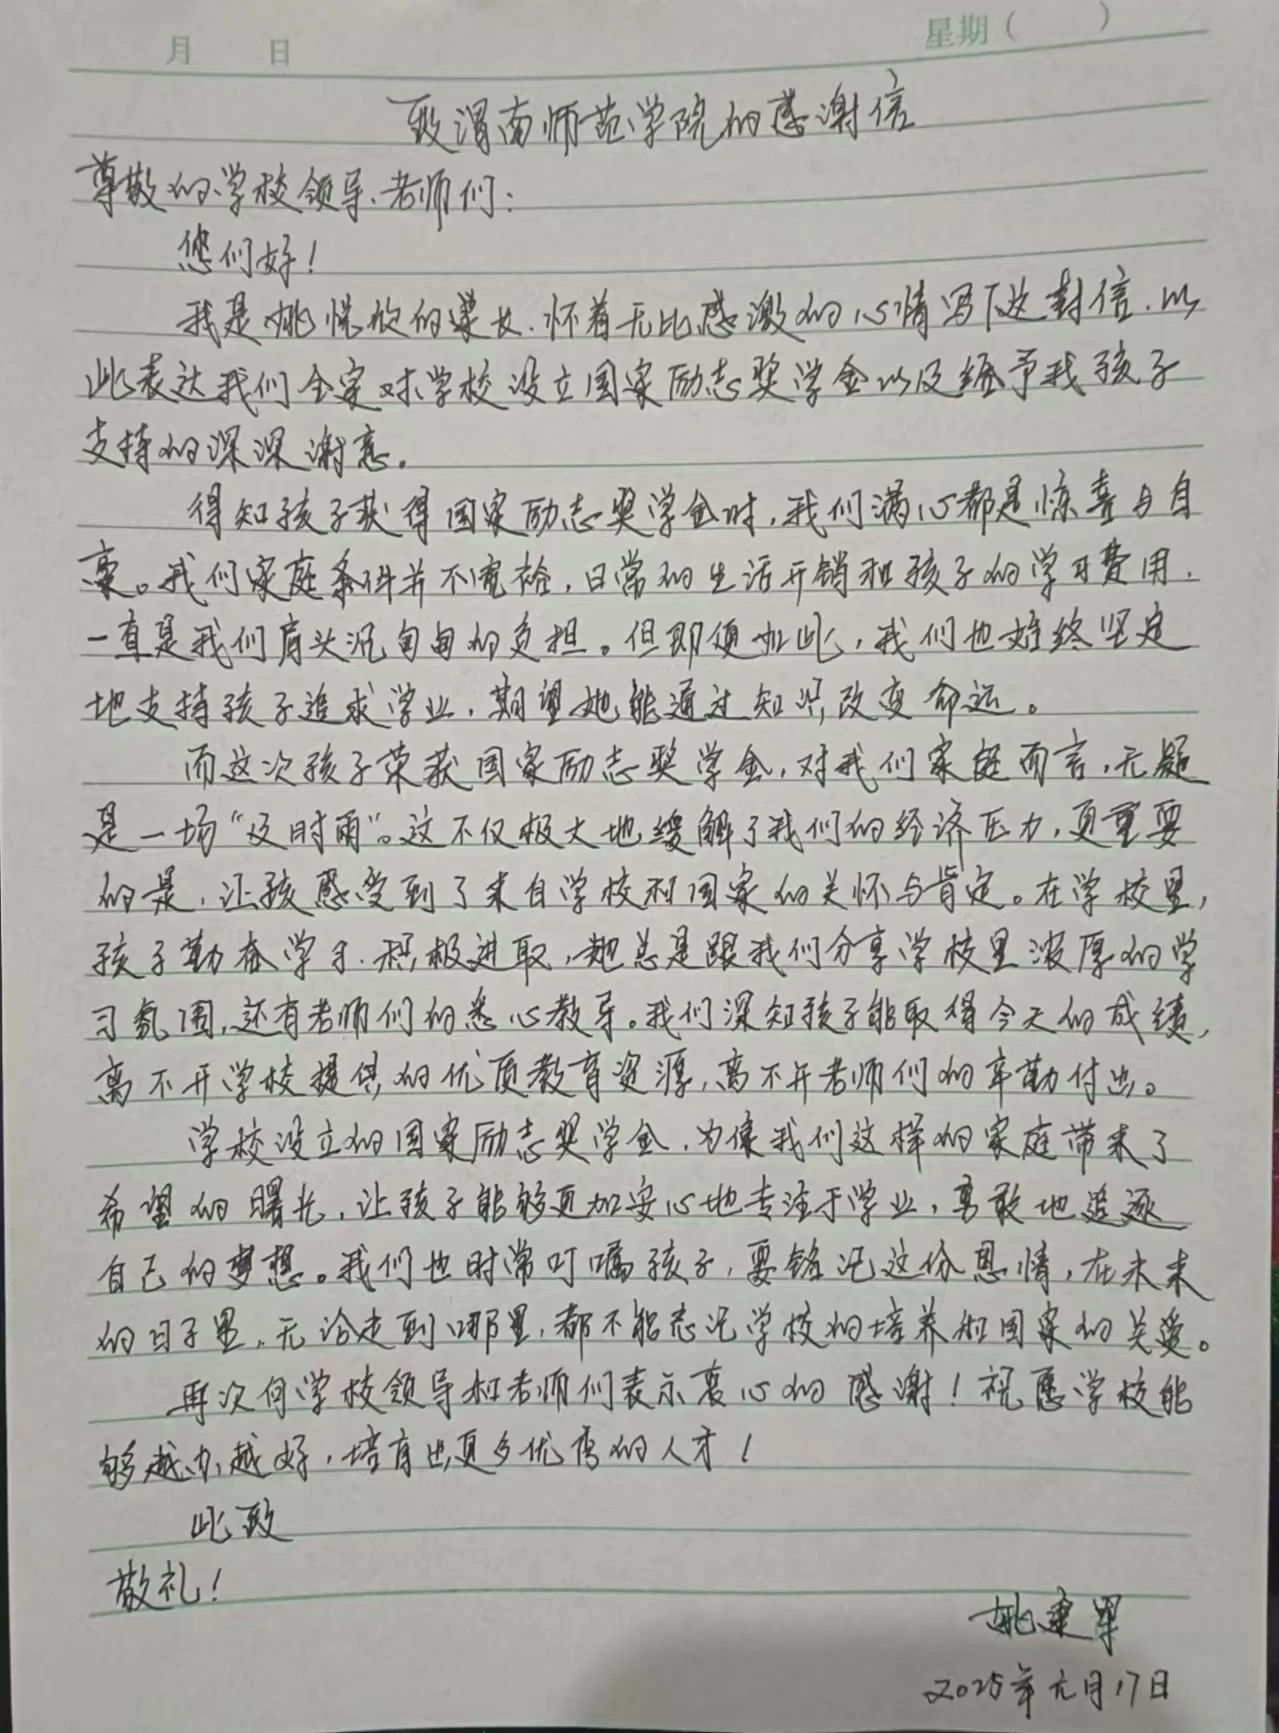 月 日 星期( )
致渭南师范学院的感谢信
尊敬的学校领导、老师们：
您们好！
我是姚悦欣的家长，怀着无比感激的心情写下这封信，以
此表达我们全家对学校设立国家励志奖学金以及给予我孩子
支持的深深谢意。
得知孩子获得国家励志奖学金时，我们满心都是惊喜与自
豪。我们家庭条件并不宽裕，日常的生活开销和孩子的学习费用，
一直是我们肩头沉甸甸的负担。但即便如此，我们也始终坚定
地支持孩子追求学业，期望她能通过知识改变命运。
而这次孩子荣获国家励志奖学金，对我们家庭而言，无疑
是一场“及时雨”。这不仅极大地缓解了我们的经济压力，更重要
的是，让孩感受到了来自学校和国家的关怀与肯定。在学校里，
孩子勤奋学习，积极进取，她总是跟我们分享学校里浓厚的学
习氛围，还有老师们的悉心教导。我们深知孩子能取得今天的成绩，
离不开学校提供的优质教育资源，离不开老师们的辛勤付出。
学校设立的国家励志奖学金，为像我们这样的家庭带来了
希望的曙光，让孩子能够更加安心地专注于学业，勇敢地追逐
自己的梦想。我们也时常叮嘱孩子，要铭记这份恩情，在未来
的日子里，无论走到哪里，都不能忘记学校的培养和国家的关爱。
再次向学校领导和老师们表示衷心的感谢！祝愿学校能
够越办越好，培育出更多优秀的人才！
此致
敬礼！
姚建军
2025年元月17日